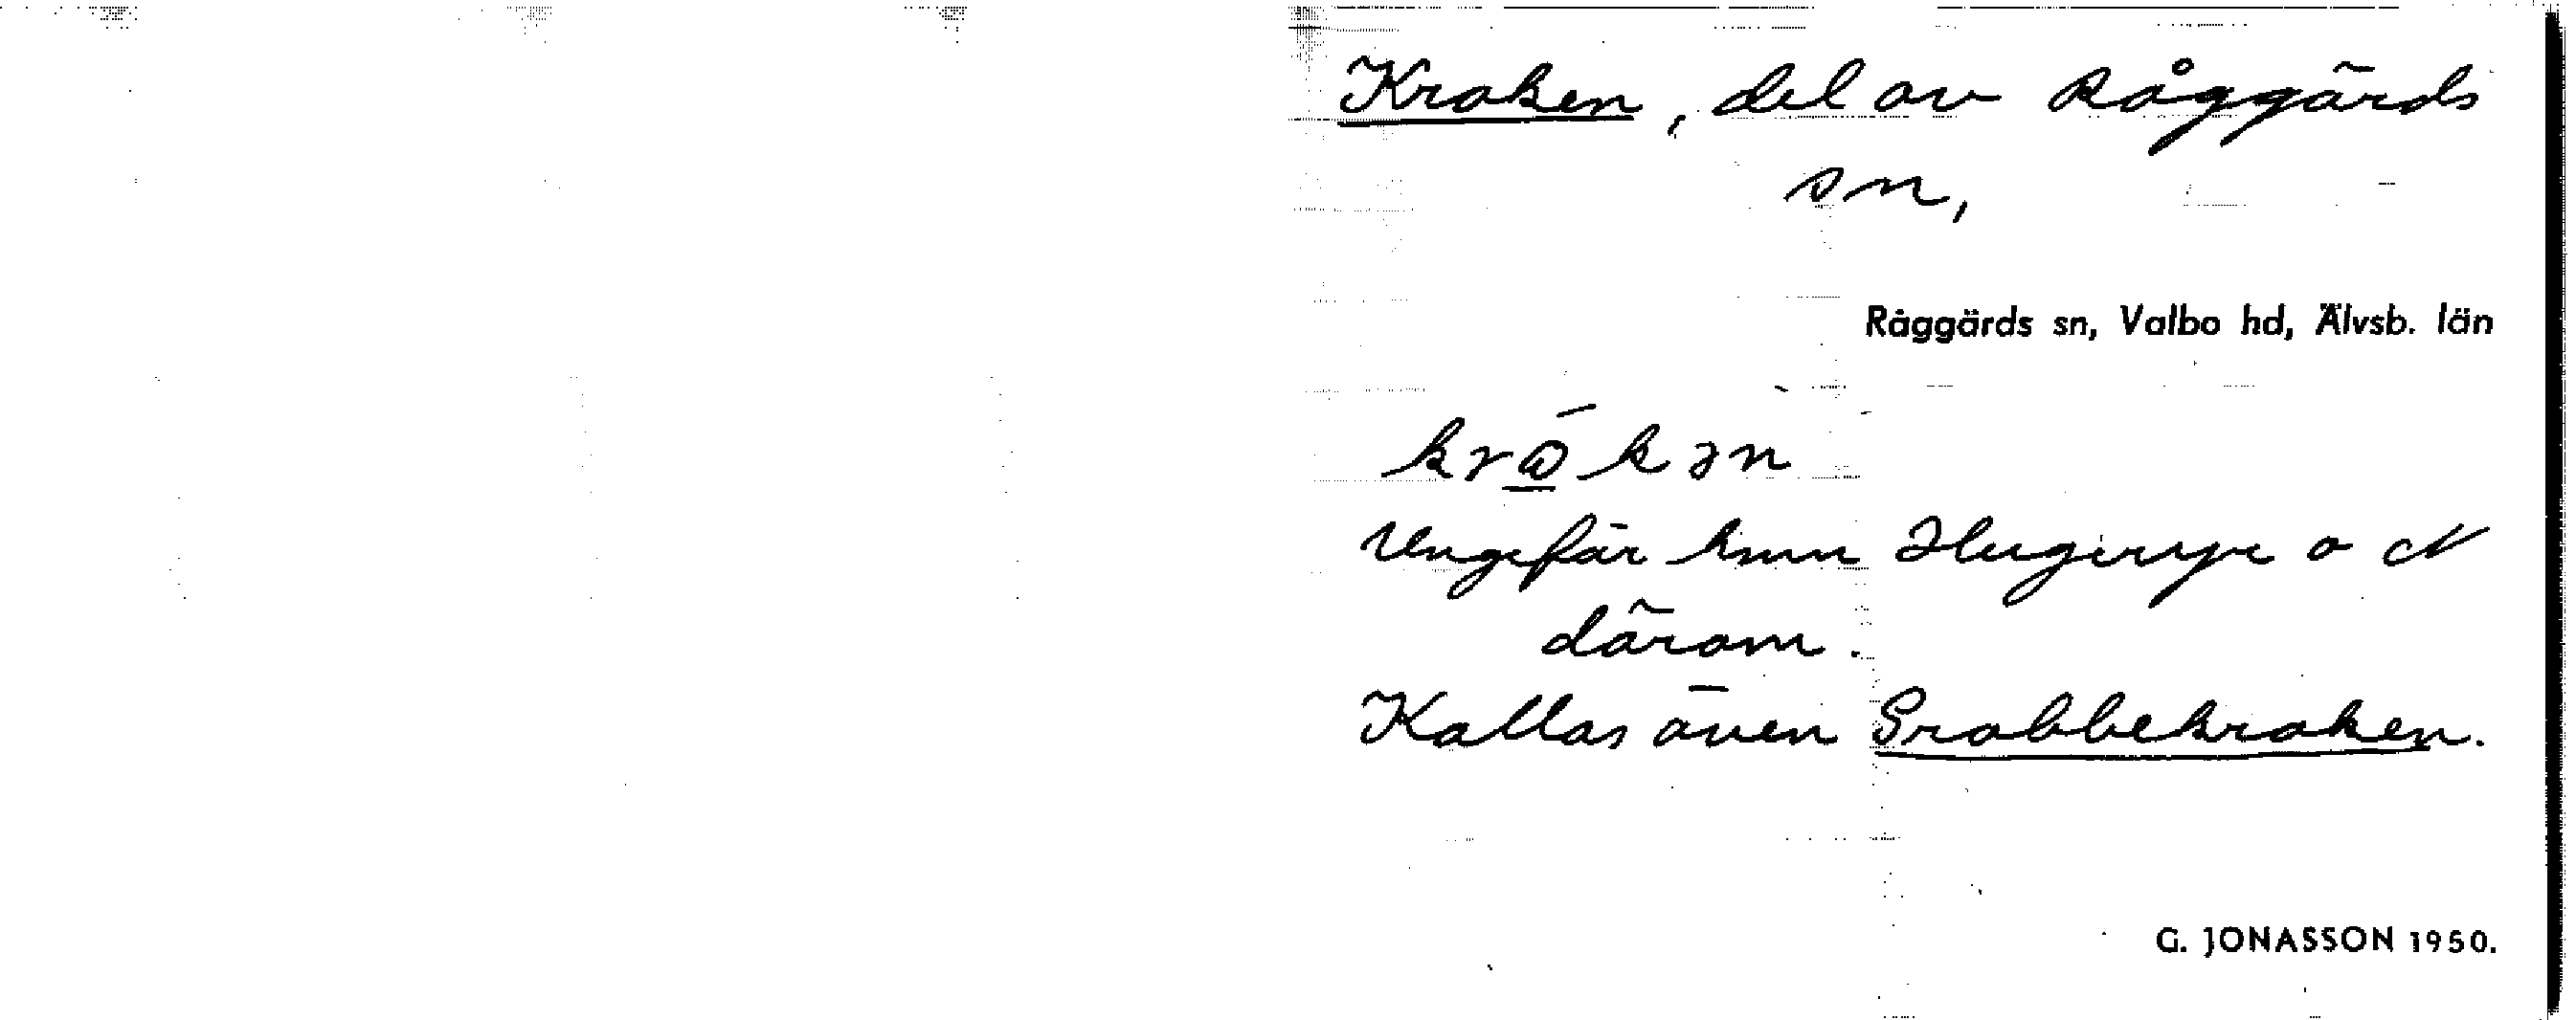 Kraken, del av Råggärds
sn,
Råggärds sn, Valbo hd, Älvsb. län
krákən
Ungefär hmn Hugeryr o N
därom.
Kallas även Grabbekraken.
G. JONASSON 1950.